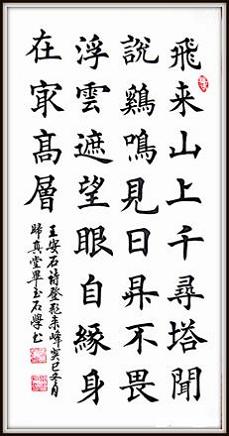 飛来山上千尋塔聞
說鷄鳴見日昇不畏
浮雲遮望眼自緣身
在㝡髙層
王安石詩登飛来峰癸巳冬月
歸真堂畢玉石學书